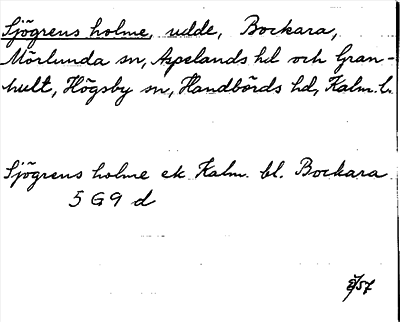 Sjögrens holme, udde, Bockara,
Mörlunda sn, Aspelands hd och Gran-
hult, Högsby sn, Handbörds hd, Kalm. l.
Sjögrens holme ek Kalm. bl. Bockara
5 G 9 d
/57